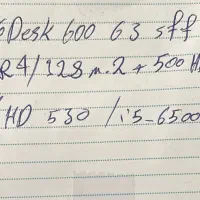 Desk 600 G3 sff
R4/128 m.2 + 500 H
HD 530 / i5-6500